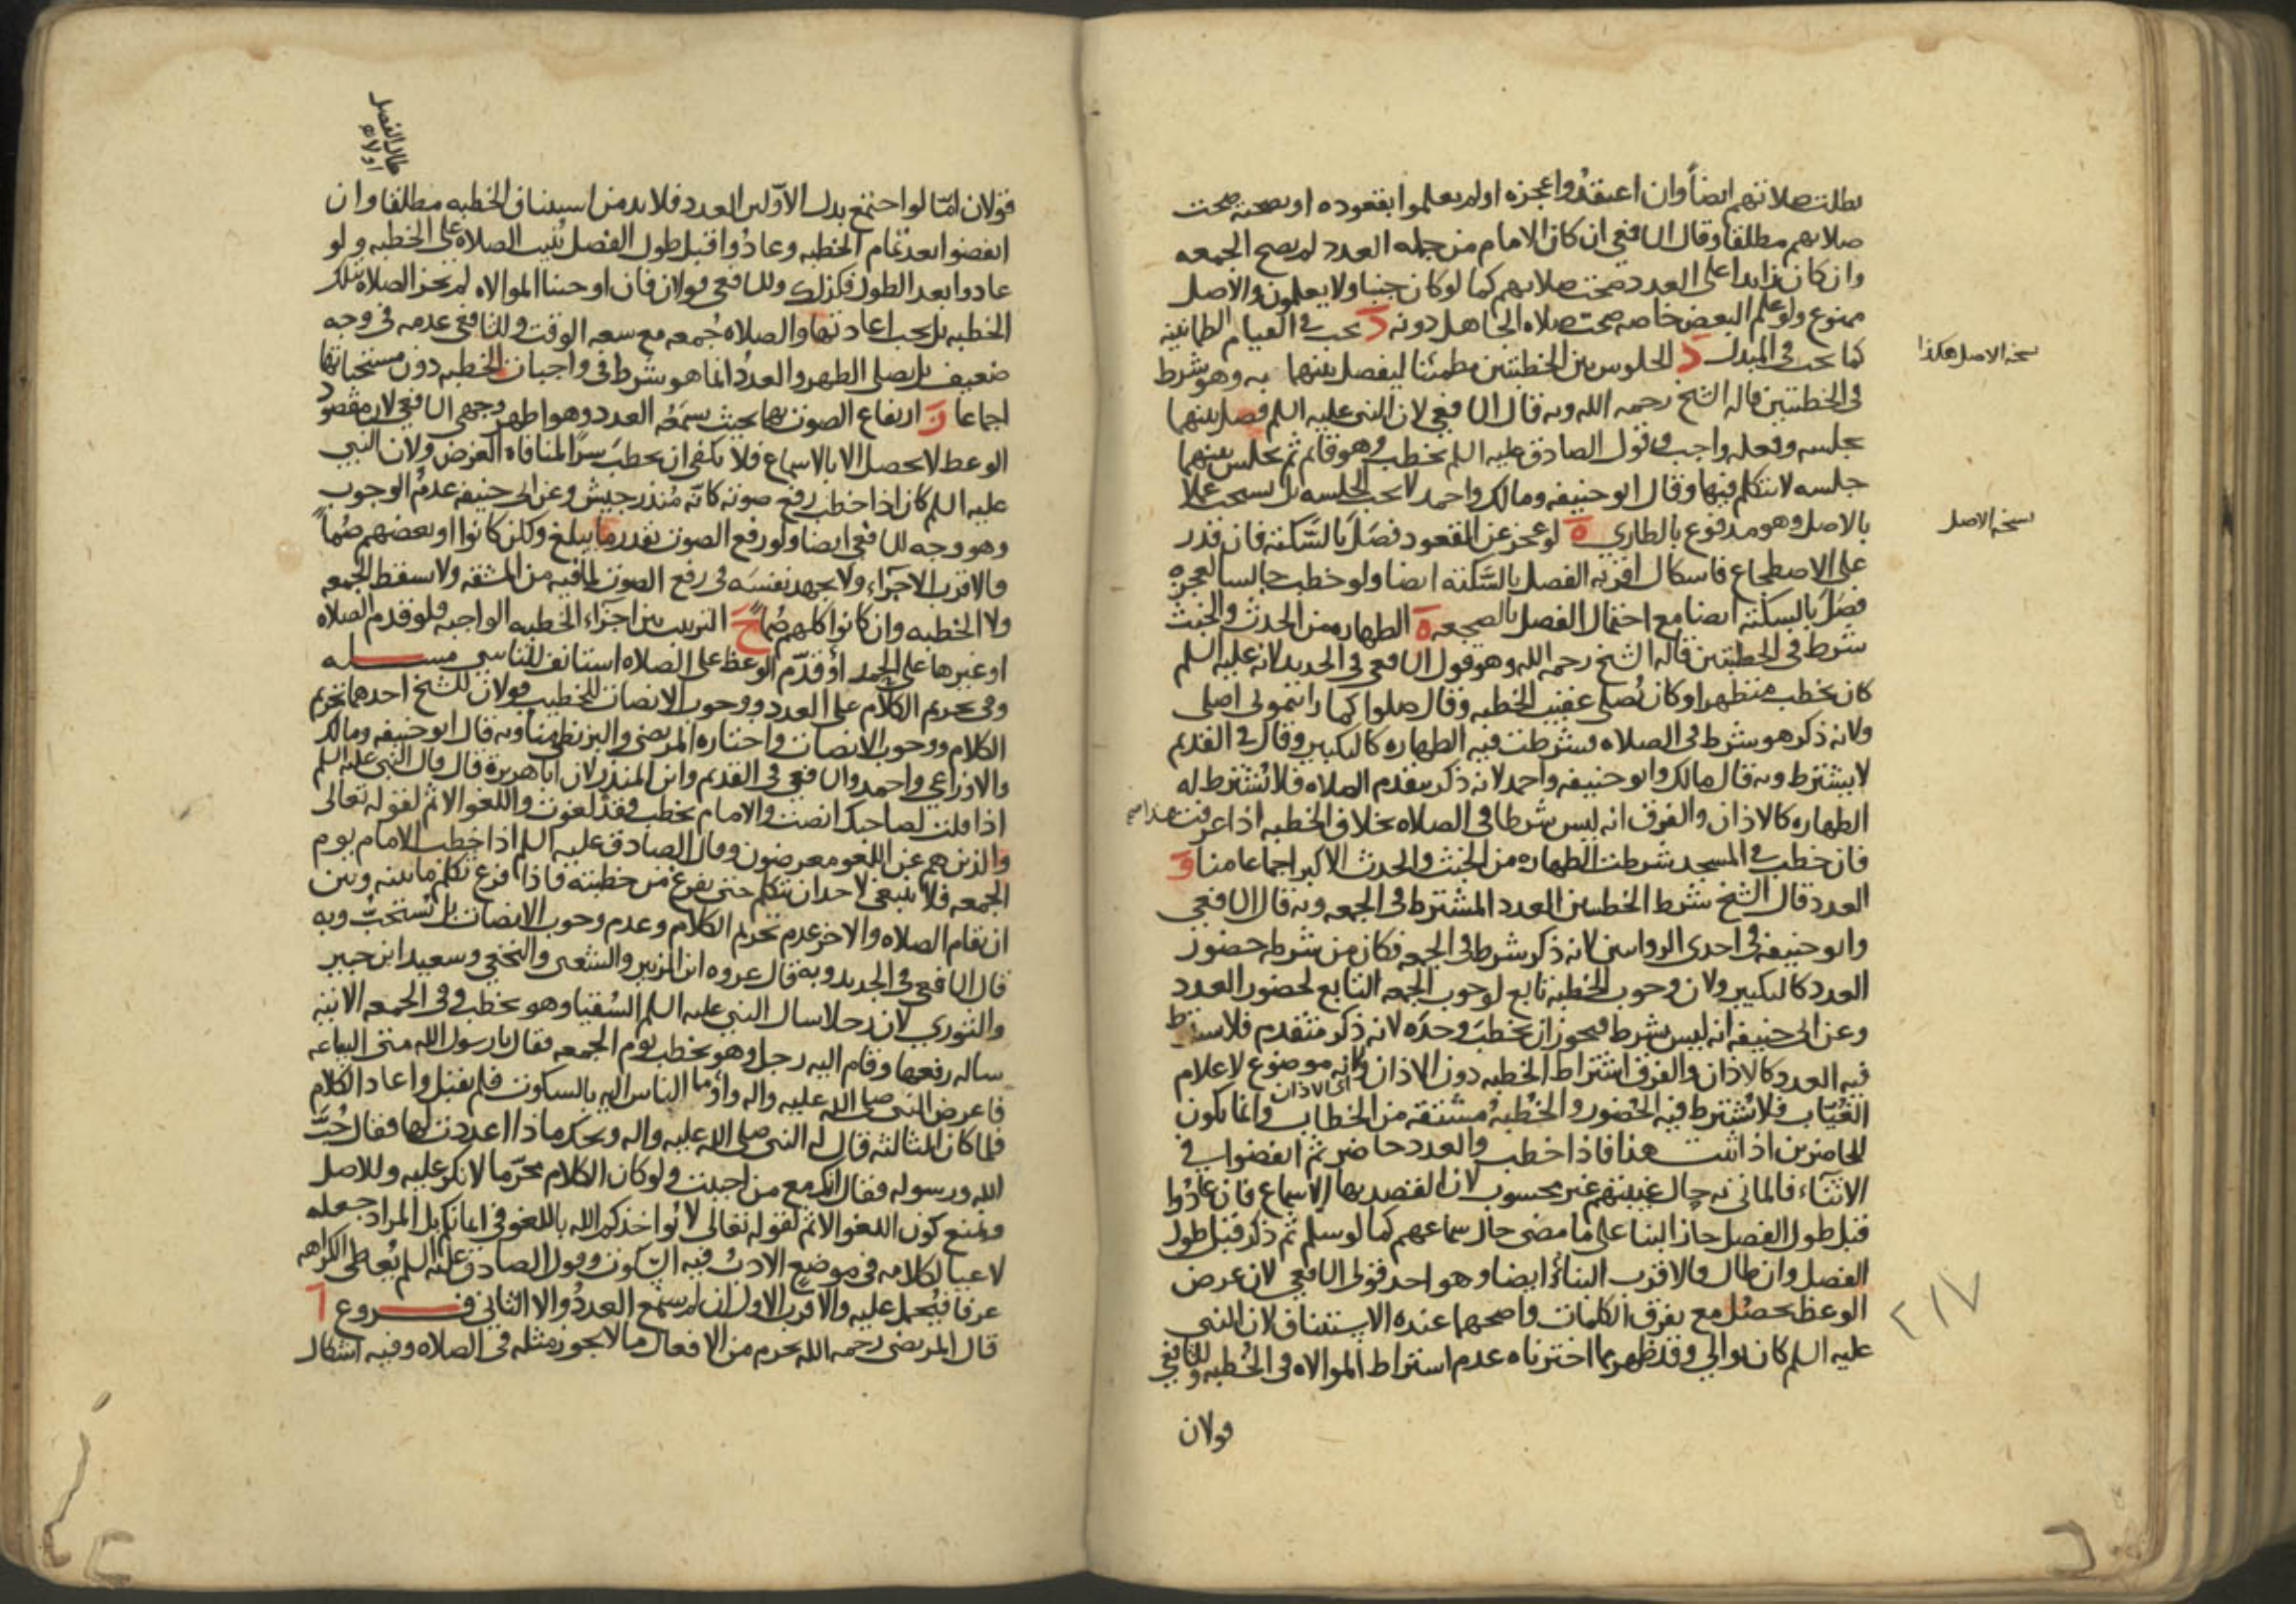 بطلت صلاتهم ايضاً وان اعتقدُوا عجزه او لم يعلموا بقعوده او بصحته صحت
صلاتهم مطلقا وقال الشافعي ان كان الامام من جمله العدد لم يصح الجمعه
وان كان زايدا على العدد صحت صلاتهم كما لو كان جنبا ولا يعلمون والاصل
ممنوع ولو علم البعض خاصه صحت صلاه الجاهل دونه د يجب في القيام الطمانينه
كما يجب في المبدل د الجلوس بين الخطبتين مطمئنا ليفصل بينهما به وهو شرط
نسخه الاصل هكذا
في الخطبتين قاله الشيخ رحمه الله وبه قال الشافعي لان النبي عليه السلم فصل بينهما
بجلسه وفعله واجب وقول الصادق عليه السلم يخطب وهو قائم ثم يجلس بينهما
جلسه لا يتكلم فيها وقال ابو حنيفه ومالك واحمد لا يجب الجلسه بل يستحب عملا
بالاصل وهو مدفوع بالطاري ه لو عجز عن القعود فصَلَ بالسَّكته فان قدر
نسخه الاصل
على الاضطجاع فاشكال اقربه الفصل بالسَّكته ايضا ولو خطب جالسا لعجزه
فصَلَ بالسكته ايضا مع احتمال الفصل بالضجعه ه الطهاره من الحدث والخبث
شرط في الخطبتين قاله الشيخ رحمه الله وهو قول الشافعي في الجديد لانه عليه السلم
كان يخطب متطهرا وكان يُصلي عقيب الخطبه وقال صلوا كما رايتموني اصلي
ولانه ذكر هو شرط في الصلاه فشرطت فيه الطهاره كالتكبير وقال في القديم
لا يشترط وبه قال مالك وابو حنيفه واحمد لانه ذكر يتقدم الصلاه فلا تُشترط له
الطهاره كالاذان والفرق انه ليس شرطا في الصلاه بخلاف الخطبه اذا عرفت هذا صح
فان خطب في المسجد شرطت الطهاره من الخبث والحدث الاكبر اجماعا منا و
العدد قال الشيخ شرط الخطبتين العدد المشترط في الجمعه وبه قال الشافعي
وابو حنيفه في احدى الروايتين لانه ذكر شرط في الجمعه فكان من شرطه حضور
العدد كالتكبير ولان وجوب الخطبه تابع لوجوب الجمعه التابع لحضور العدد
وعن ابي حنيفه انه ليس بشرط فيجوز ان يخطب وحدَه لانه ذكر متقدم فلا يشترط
فيه العدد كالاذان والفرق اشتراط الخطبه دون الاذان ولانه موضوع لاعلام
اى الاذان
الغُيّاب فلا يُشترط فيه الحُضور والخُطبهُ مشتقه من الخطاب وانما يكون
للحاضرين اذا ثبت هذا فاذا خطب والعدد حاضر ثم انفضوا في
الاثنآء فالماتي به حال غيبتهم غير محسوب لان القصد بها الاسماع فان عادُوا
قبل طول الفصل جاز البنا على ما مضى حال سماعهم كما لو سلم ثم ذكر قبل طول
الفصل وان طال فالاقرب البنآءُ ايضا وهو احد قولي الشافعي لان غرض
الوعظ يحصُل مع تفرق الكلمات واصحهما عنده الاستئناف لان النبي
٢١٧
عليه السلم كان يوالي وقد ظهر مما اخترناه عدم اشتراط الموالاه في الخُطبه وللشافعي
قولان
طال الفصل
او لا
قولان امّا لو اجتمع بدل الاوّلين العدد فلا بد من استيناف الخطبه مطلقا وان
انفضوا بعد تمام الخطبه وعادُوا قبل طول الفصل بُنيت الصلاه على الخطبه ولو
عادوا بعد الطول فكذلك وللشافعي قولان فان اوجبنا الموالاه لم يجز الصلاه بتلك
الخطبه بل يجب اعادتها والصلاه جُمعه مع سعه الوقت وللشافعي عدمه في وجه
ضعيف بل يصلى الظهر والعددُ انما هو شرط في واجبات الخطبه دون مستحباتها
اجماعا ز ارتفاع الصوت بهما بحيث يسمعُه العدد وهو اظهر وجهى الشافعي لان مقصود
الوعظ لا يحصل الا بالاسماع فلا يكفي ان يخطبَ سرّا لمنافاه الغرض ولان النبي
عليه السلم كان اذا خطب رفع صوته كانّه مُنذر جيش وعن ابي حنيفه عدمُ الوجوب
وهو وجه للشافعي ايضا ولو رفع الصوت بقدر ما يبلغ ولكن كانوا او بعضهم صُمّاً
فالاقرب الاجزآء ولا يجهد نفسَه في رفع الصوت لما فيه من المشقه ولا سقط الجمعه
ولا الخطبه وان كانوا كلهم صُمّاً ح الترتيب بين اجزآء الخطبه الواجبه فلو قدم الصلاه
او غيرها على الحمد او قدّم الوعظ على الصلاه استانف للتاسي مسله
وفي تحريم الكلام على العدد ووجوب الانصات للخطيب قولان للشيخ احدهما تحريم
الكلام ووجوب الانصات واختاره المرتضى والبزنطي منا وبه قال ابو حنيفه ومالك
والاوزاعي واحمد والشافعي في القديم وابن المنذر لان ابا هريرة قال قال النبي عليه السلم
اذا قلت لصاحبك انصت والامام يخطب فقد لغوت واللغو الاثم لقوله تعالى
والذين هم عن اللغو معرضون وقال الصادق عليه السلم اذا خطب الامام يوم
الجمعه فلا ينبغي لاحد ان يتكلم حتى يفرغ من خطبته فاذا فرغ تكلم ما بينه وبين
ان تقام الصلاه والاخر عدم تحريم الكلام وعدم وجوب الانصات بل تُستحبُّ وبه
قال الشافعي في الجديد وبه قال عروه ابن الزبير والشعبي والنخعي وسعيد ابن جبير
والثوري لان رجلا سال النبي عليه السلم السُقيا وهو يخطب وفي الجمعه الاتيه
ساله رفعها وقام اليه رجل وهو يخطب يوم الجمعه فقال يا رسول الله متى الساعه
فاعرض النبي صلى الله عليه واله واَومآ الناس اليه بالسكوت فلم يقبل واعاد الكلام
فلما كان الثالثه قال له النبي صلى الله عليه واله ويحك ماذا اعددت لها فقال حُبَّ
الله ورسوله فقال انك مع من احببت ولو كان الكلام محرّما لانكر عليه وللاصل
ويمنع كون اللغو الاثم لقوله تعالى لا يُواخذكم الله باللغو في ايمانكم بل المراد جعله
لاغيا لكلامه في موضعٍ الادبُ فيه السّكوت وقول الصادق عليه السلم يُعطي الكراهه
عرفا فيُحمل عليه والاقرب الاول ان لم يسمع العددُ والا الثاني فـروع آ
قال المرتضى رحمه الله يحرم من الافعال ما لا يجوز مثله في الصلاه وفيه اشكال